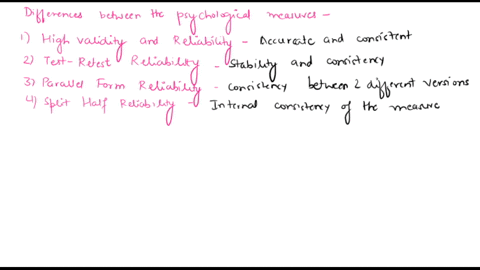 Differences between the psychological measures -
1) High validity and Reliability - Accurate and consistent
2) Test-Retest Reliability - Stability and consistency
3) Parallel Form Reliability - consistency between 2 different versions
4) Split Half Reliability - Internal consistency of the measure